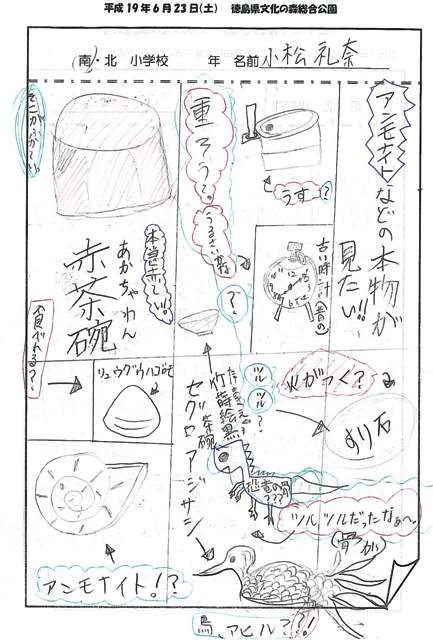 平成19年6月23日(土) 徳島県文化の森総合公園
南・北 小学校 年 名前 小松 礼奈
アンモナイトなどの本物が
見たい!!
うす?
古い時計(昔の)
重ろう?。
うるさい
?
本当に赤でい!!
あかちゃわん
赤茶碗
食べれる?
リュウグウハゴロモ
竹蒔絵黒茶碗
セグロアジサシ
ツル
ツル?
火がつく?
めり石
恐竜の骨???
ツルツルだったなぁ〜。
(骨が)
アンモナイト!?
鳥、アヒル??!